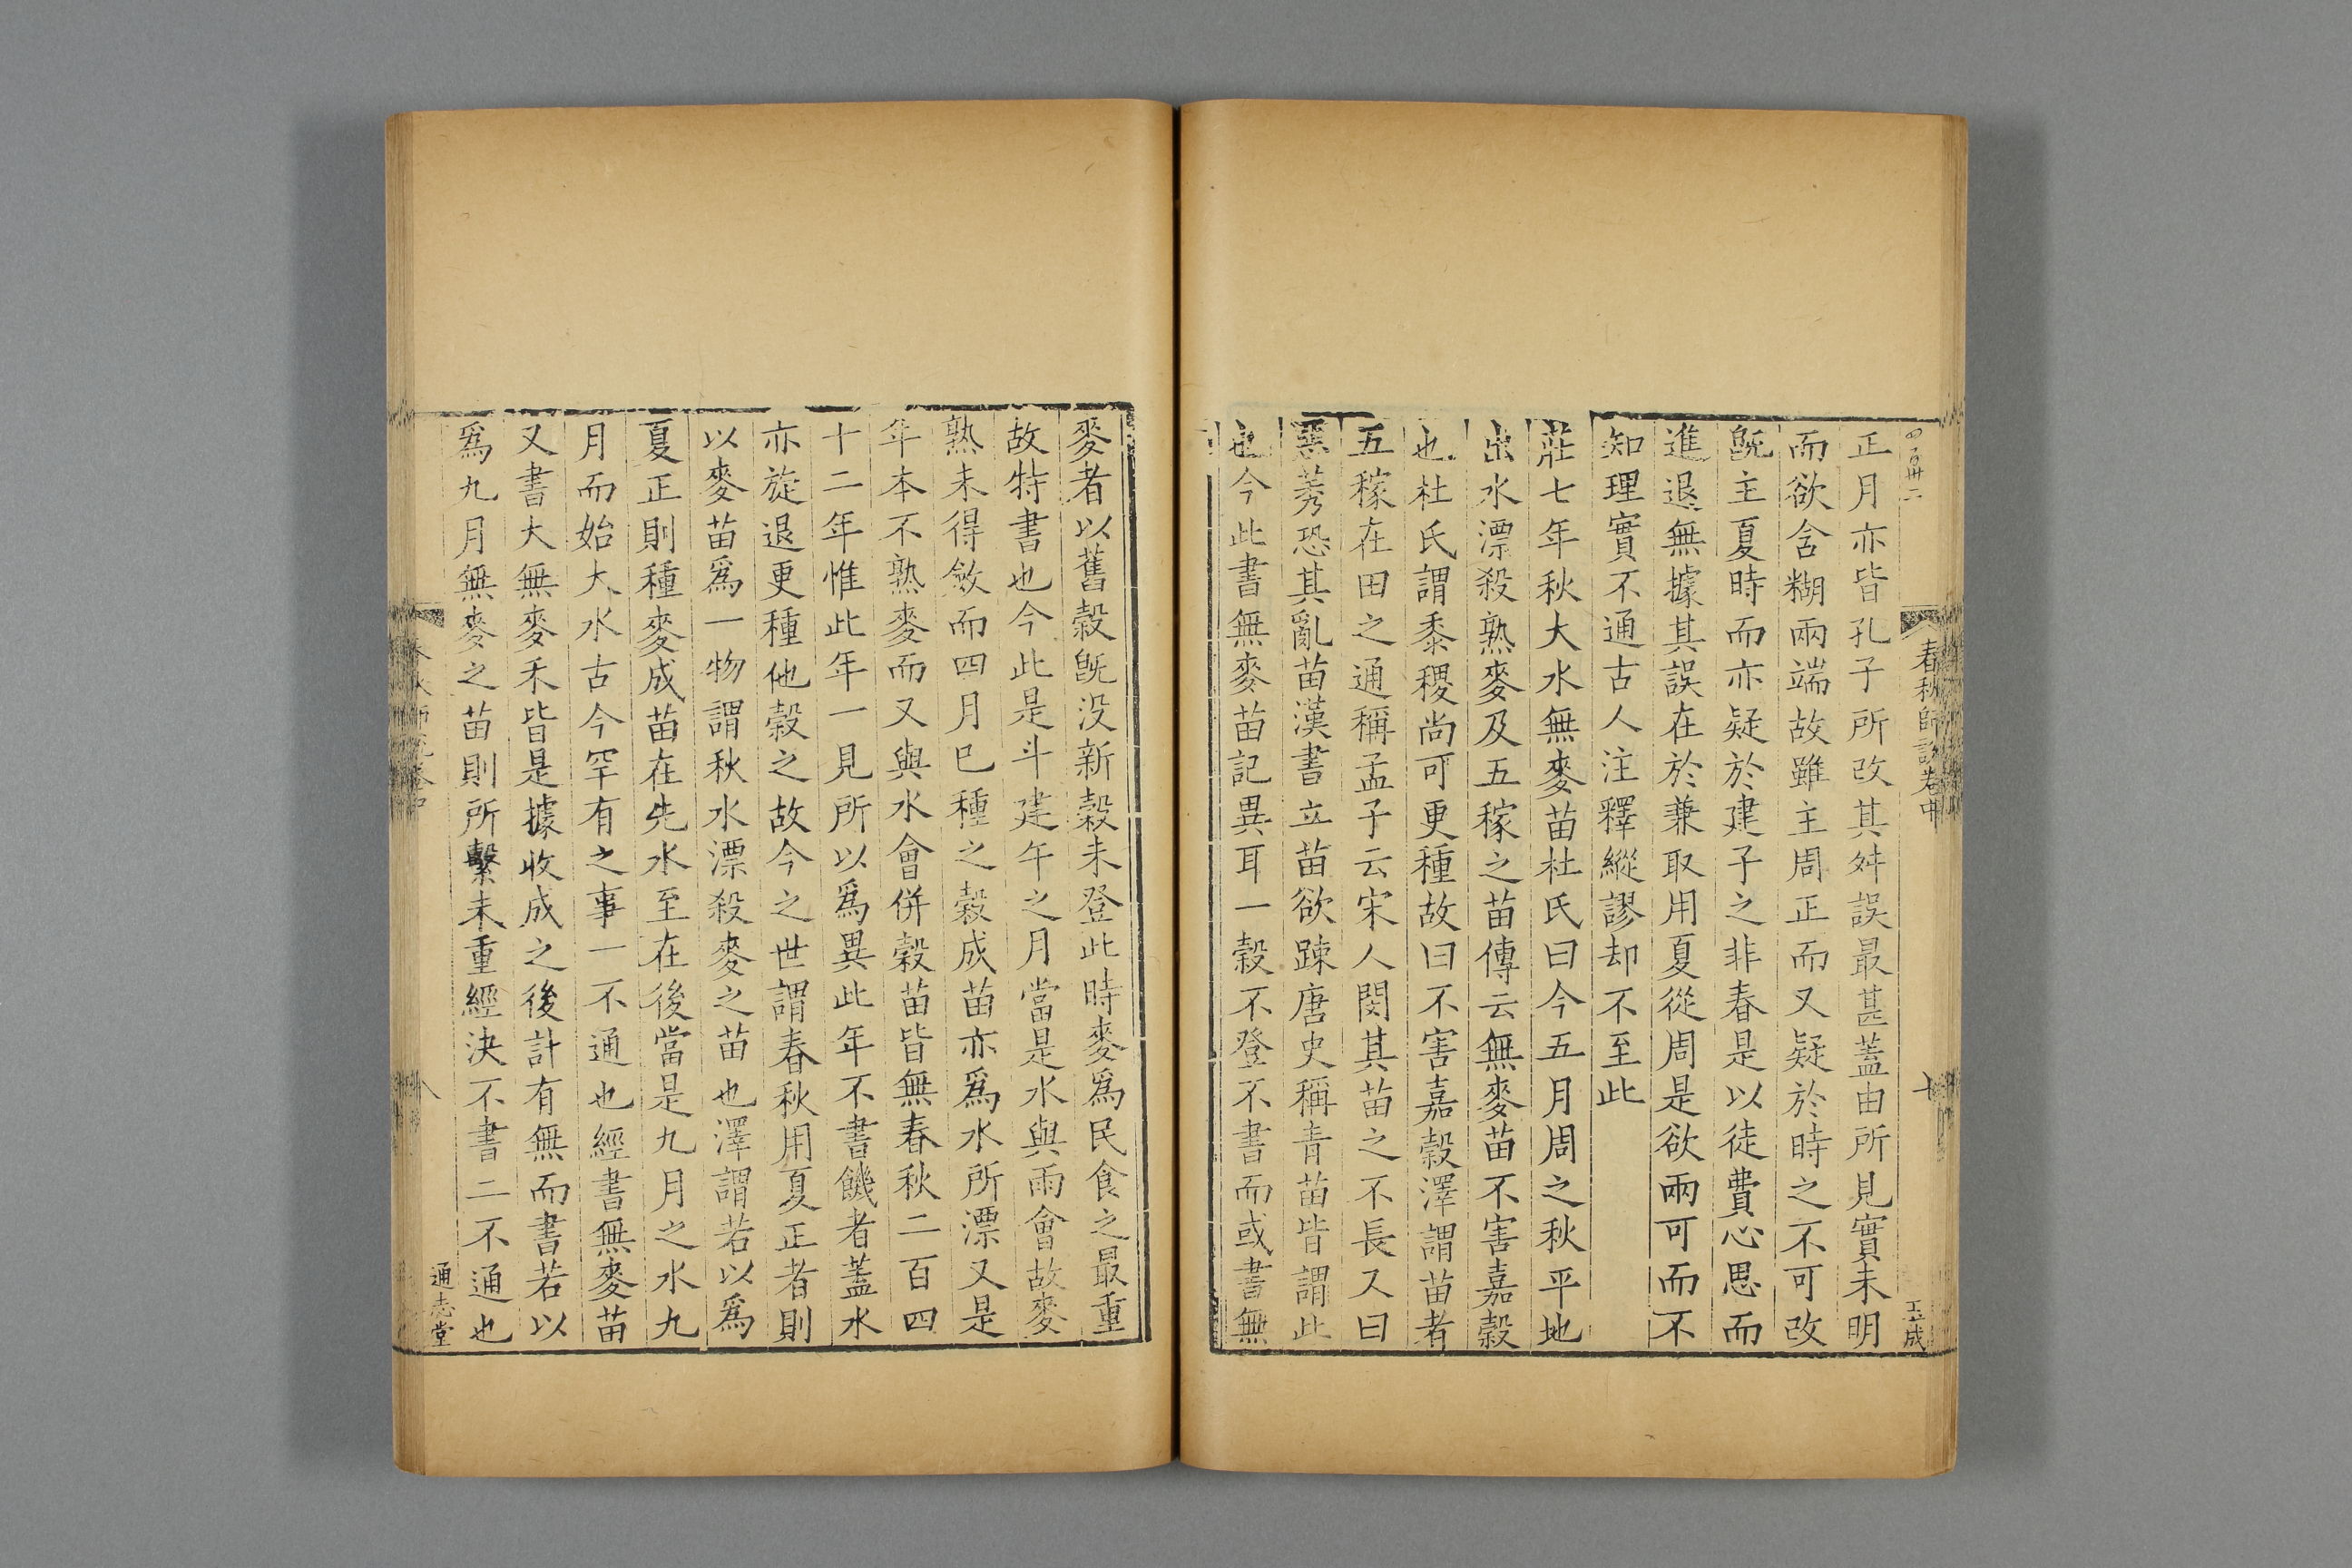 四百卅二
春秋師說卷中
十
玉成
正月亦皆孔子所改其舛誤最甚蓋由所見實未明
而欲含糊兩端故雖主周正而又疑於時之不可改
旣主夏時而亦疑於建子之非春是以徒費心思而
進退無據其誤在於兼取用夏從周是欲兩可而不
知理實不通古人注釋縱謬却不至此
莊七年秋大水無麥苗杜氏曰今五月周之秋平地
出水漂殺熟麥及五稼之苗傳云無麥苗不害嘉穀
也杜氏謂黍稷尚可更種故曰不害嘉穀澤謂苗者
五稼在田之通稱孟子云宋人閔其苗之不長又曰
惡莠恐其亂苗漢書立苗欲踈唐史稱青苗皆謂此
也今此書無麥苗記異耳一穀不登不書而或書無
麥者以舊穀旣没新穀未登此時麥爲民食之最重
故特書也今此是斗建午之月當是水與雨會故麥
熟未得斂而四月已種之穀成苗亦爲水所漂又是
年本不熟麥而又與水會併穀苗皆無春秋二百四
十二年惟此年一見所以爲異此年不書饑者蓋水
亦旋退更種他穀之故今之世謂春秋用夏正者則
以麥苗爲一物謂秋水漂殺麥之苗也澤謂若以爲
夏正則種麥成苗在先水至在後當是九月之水九
月而始大水古今罕有之事一不通也經書無麥苗
又書大無麥禾皆是據收成之後計有無而書若以
爲九月無麥之苗則所繫未重經決不書二不通也
通志堂